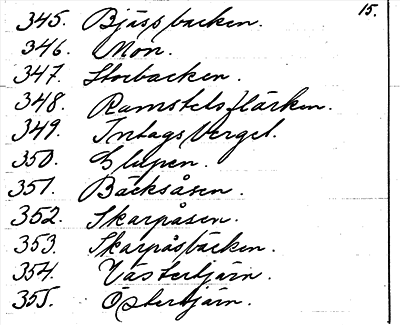 15.
345. Bjässbacken.
346. Mon.
347. Storbacken.
348. Ramstelsflärken.
349. Intagsberget.
350. Glupen.
351. Bäcksåsen.
352. Skarpåsen.
353. Skarpåsbäcken.
354. Västertjärn.
355. Östertjärn.